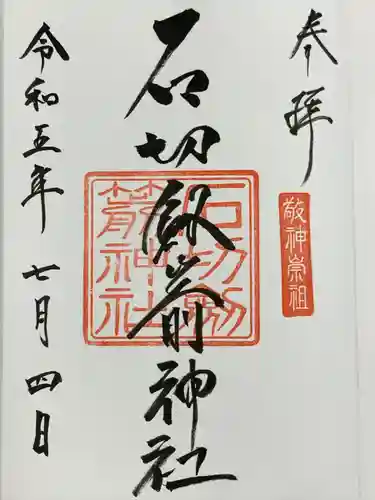 奉拝
敬神崇祖
石切劔箭神社
石切劔
箭神社
令和五年七月四日